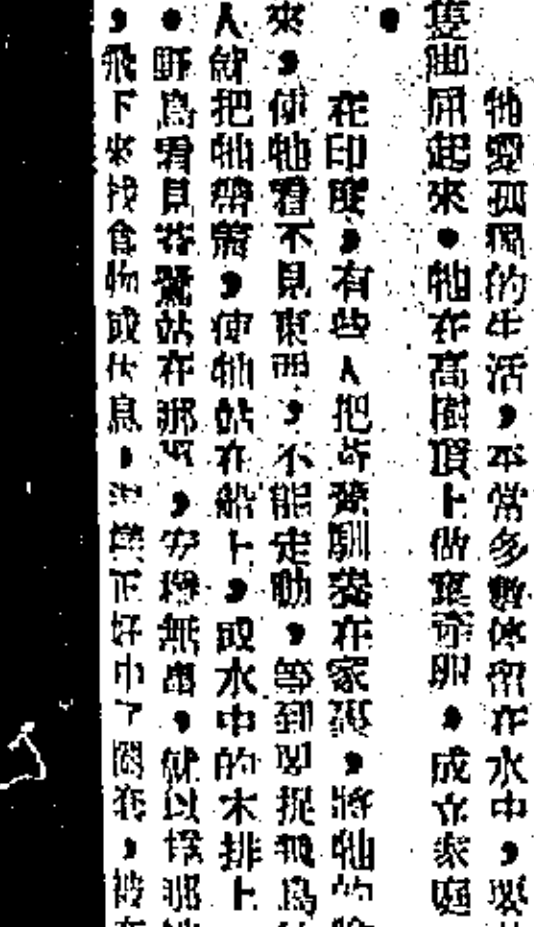 牠愛孤獨的生活，平常多數休留在水中，
隻脚屈起來。牠在高樹頂上做窠育卵。成立家庭
。
在印度，有些人把蒼鷺馴養在家裏，將牠的
來，使牠看不見東西，不能走動。等到要捉飛鳥
人就把牠帶着，使牠站在船上，或水中的木排上
。野鳥看見蒼鷺站在那裏，安穩無事，就以爲那
，飛下來找食物或休息，這樣正好中了圈套，被